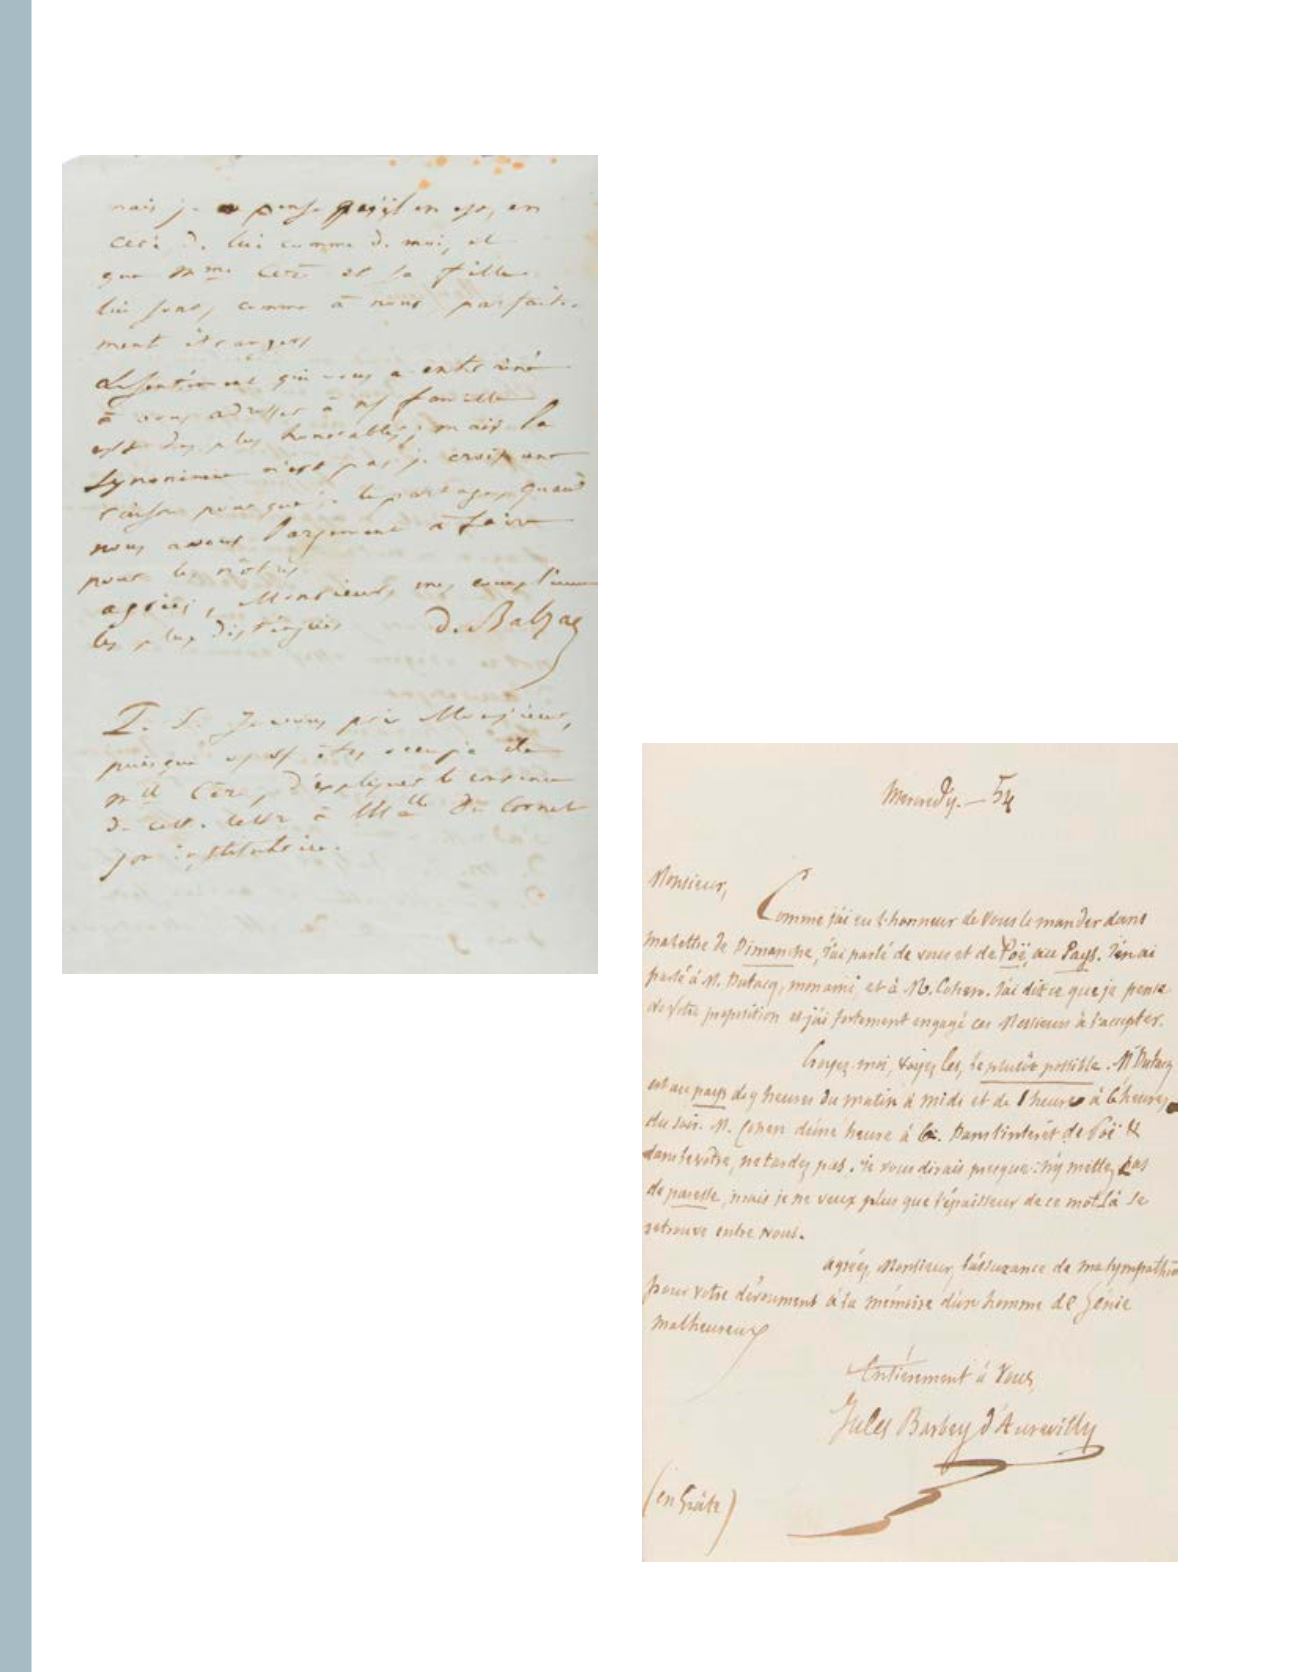 mais je pense qu'il en est, en
ceci de lui comme de moi, et
que Mme Céré et sa fille
lui sont, comme à nous parfaite-
ment étrangers
Le sentiment qui vous a entraîné
à vous adresser à ma famille
est des plus honorables; mais la
synonimie n'est pas je crois une
raison pour que je le partage, quand
nous avons largement à faire
pour les nôtres
agréez, Monsieur, mes complimens
les plus distingués de Balzac
P. S. Je vous prie Monsieur,
puisque vous êtes occupé de
Mlle Céré, d'expliquer le contenu
de cette lettre à Mlle Du Cornet
son institutrice.
Mercredy. — 54
Monsieur,
Comme j'ai eu l'honneur de vous le mander dans
ma lettre de Dimanche, j'ai parlé de vous et de Poë, au Pays. J'en ai
parlé à M. Dutacq, mon ami, et à M. Cohen. J'ai dit ce que je pense
de votre proposition et j'ai fortement engagé ces Messieurs à l'accepter.
Croyez-moi, voyez les, le plutôt possible. Mr Dutacq
est au pays de 9 heures du matin à midi et de 1 heure à 6 heures
du soir. M. Cohen d'une heure à 6. Dans l'intérêt de Poë &
dans le vôtre, ne tardez pas. Je vous dirais presque: n'y mettez pas
de paresse, mais je ne veux plus que l'épaisseur de ce mot là se
retrouve entre nous.
agréez, Monsieur, l'assurance de ma sympathie
pour votre dévoument à la mémoire d'un homme de Génie
malheureux
Entièrement à vous,
Jules Barbey d'Aurevilly
(en hâte)